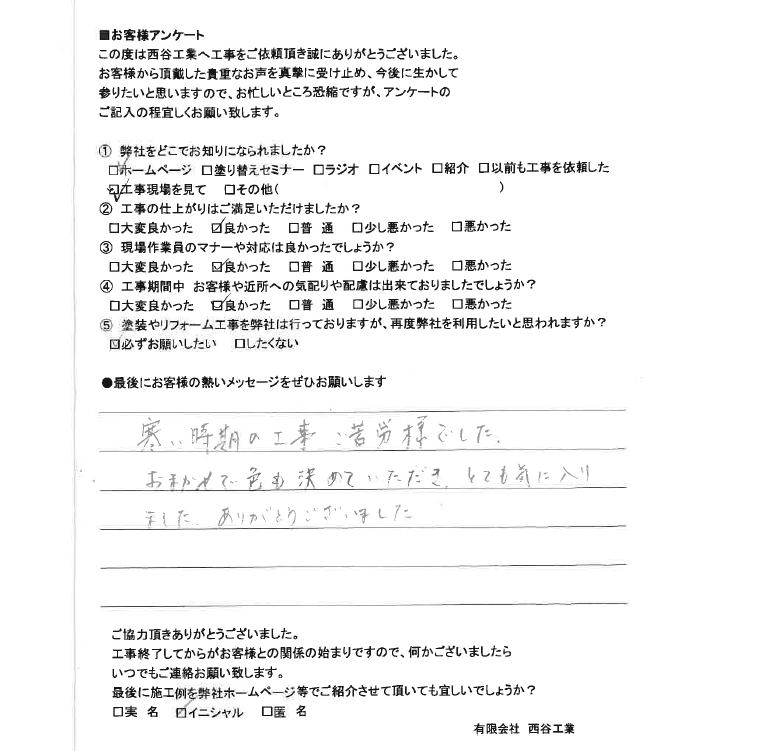 ■お客様アンケート
この度は西谷工業へ工事をご依頼頂き誠にありがとうございました。
お客様から頂戴した貴重なお声を真摯に受け止め、今後に生かして
参りたいと思いますので、お忙しいところ恐縮ですが、アンケートの
ご記入の程宜しくお願い致します。
① 弊社をどこでお知りになられましたか？
☑ホームページ □塗り替えセミナー □ラジオ □イベント □紹介 □以前も工事を依頼した
☑工事現場を見て □その他( )
② 工事の仕上がりはご満足いただけましたか？
□大変良かった ☑良かった □普 通 □少し悪かった □悪かった
③ 現場作業員のマナーや対応は良かったでしょうか？
□大変良かった ☑良かった □普 通 □少し悪かった □悪かった
④ 工事期間中 お客様や近所への気配りや配慮は出来ておりましたでしょうか？
□大変良かった ☑良かった □普 通 □少し悪かった □悪かった
⑤ 塗装やリフォーム工事を弊社は行っておりますが、再度弊社を利用したいと思われますか？
☑必ずお願いしたい □したくない
●最後にお客様の熱いメッセージをぜひお願いします
寒い時期の工事ご苦労様でした。
おまかせで色も決めていただき、とても気に入り
ました。ありがとうございました
ご協力頂きありがとうございました。
工事終了してからがお客様との関係の始まりですので、何かございましたら
いつでもご連絡お願い致します。
最後に施工例を弊社ホームページ等でご紹介させて頂いても宜しいでしょうか？
□実 名 ☑イニシャル □匿 名
有限会社 西谷工業